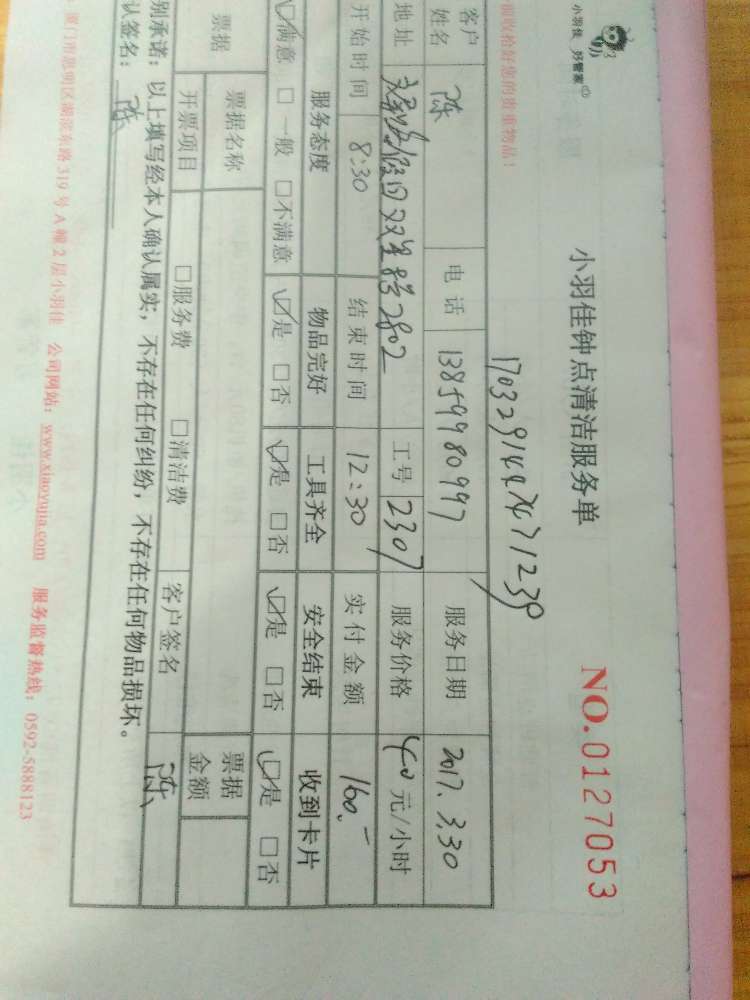 小羽佳 好管家
小羽佳钟点清洁服务单
NO.0127053
前收拾好您的贵重物品！
客户姓名 陈 电话 13859980997 服务日期 2017.3.30
地址 假日 8号2802 工号 2307 服务价格 40元/小时
开始时间 8:30 结束时间 12:30 实付金额 160.-
服务态度 物品完好 工具齐全 安全结束 收到卡片
☑满意 □一般 □不满意 ☑是 □否 ☑是 □否 ☑是 □否 ☑是 □否
票据 票据名称 票据金额
开票项目 □服务费 □清洁费 客户签名 陈
别承诺：以上填写经本人确认属实，不存在任何纠纷，不存在任何物品损坏。
认签名：陈
厦门市思明区湖滨东路319号A幢2层小羽佳 公司网站：www.xiaoyujia.com 服务监督热线：0592-5888123